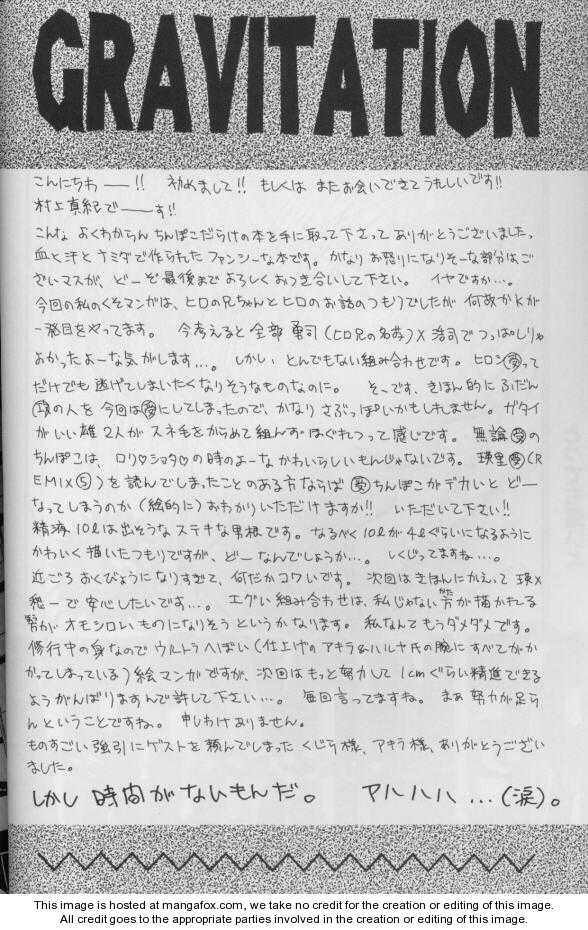 GRAVITATION
こんにちわ――!! 初めまして!! もしくは またお会いできて うれしいです!!
村上真紀で――す!!
こんな よくわからん ちんぽこだらけの本を手に取って下さって ありがとうございました。
血と汗とナミダで作られた ファンシーな本です。 かなり お怒りになりそーな部分はご
ざいマスが、どーぞ最後まで よろしく おつき合いして下さい。 イヤですか…。
今回の私のくそマンガは、ヒロの兄ちゃんとヒロのお話のつもりでしたが 何故かKが
一発目をやってます。 今考えると 全部 勇司(ヒロ兄の名前)×浩司で つっぱしりゃ
よかったよーな気がします…。 しかし とんでもない組み合わせです。 ヒロン受って
だけでも 逃げてしまいたくなりそうなものなのに。 そーです、きほん的に ふだん
攻の人を 今回は受にしてしまったので、かなり さぶっぽいかもしれません。 ガタイ
がいい雄2人が スネ毛をからめて 組んずほぐれつって感じです。 無論受の
ちんぽこは、ロリ♡ショタ♡の時のよーな かわいらしいもんじゃないです。 瑛里受(R
EMIX⑤)を読んでしまったことのある方ならば 受ちんぽこがデカいと どー
なってしまうのか(絵的に)おわかりいただけますか!! いただいて下さい!!
精液10ℓは出そうな ステキな男根です。 なるべく10ℓが4ℓぐらいになるように
かわいく描いたつもりですが、どーなんでしょうか…。 しくじってますね…。
近ごろ おくびょうになりすぎて、何だかコワいです。 次回は きほんにかえって 瑛×
愁一で安心したいです…。 エグい組み合わせは、私じゃない方が描かれる
方が オモシロいものになりそう というかなります。 私なんて もうダメダメです。
修行中の身なので ウルトラへぼい(仕上げのアキラ&ハルヤ氏の腕にすべてかか
かってしまっている)絵マンガですが、次回はもっと努力して 1cmぐらい精進できる
よう がんばりますんで許して下さい…。 毎回言ってますね。 まあ 努力が足ら
んということですね。 申しわけありません。
ものすごい強引にゲストを頼んでしまった くじら様、アキラ様、ありがとうござい
ました。
しかし 時間がないもんだ。 アハハハ…(涙)。
This image is hosted at mangafox.com, we take no credit for the creation or editing of this image.
All credit goes to the appropriate parties involved in the creation or editing of this image.